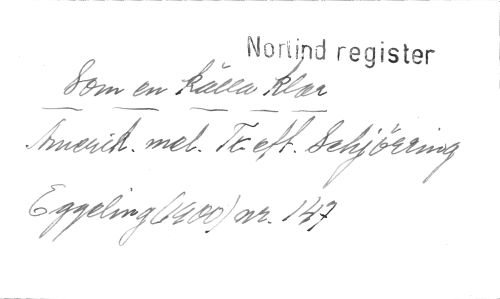 Norlind register
Som en källa klar
Amerik. mel. Tr. eft. Schjörring
Eggeling (1900) nr. 147